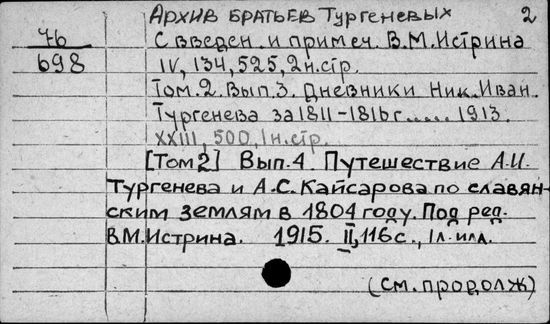 Архив братьев Тургеневых 2
76
698
С введен. и примеч. В.М.Истрина
IV, 134, 525, 2н.стр.
Том.2. Вып.3. Дневники Ник.Иван.
Тургенева за 1811-1816г...... 1913.
XXIII, 500, 1н.стр.
[Том2] Вып.4. Путешествие А.И.
Тургенева и А.С.Кайсарова по славян-
ским землям в 1804 году. Под ред.
В.М.Истрина. 1915. II, 116с., 1л.илл.
(См. продолж)